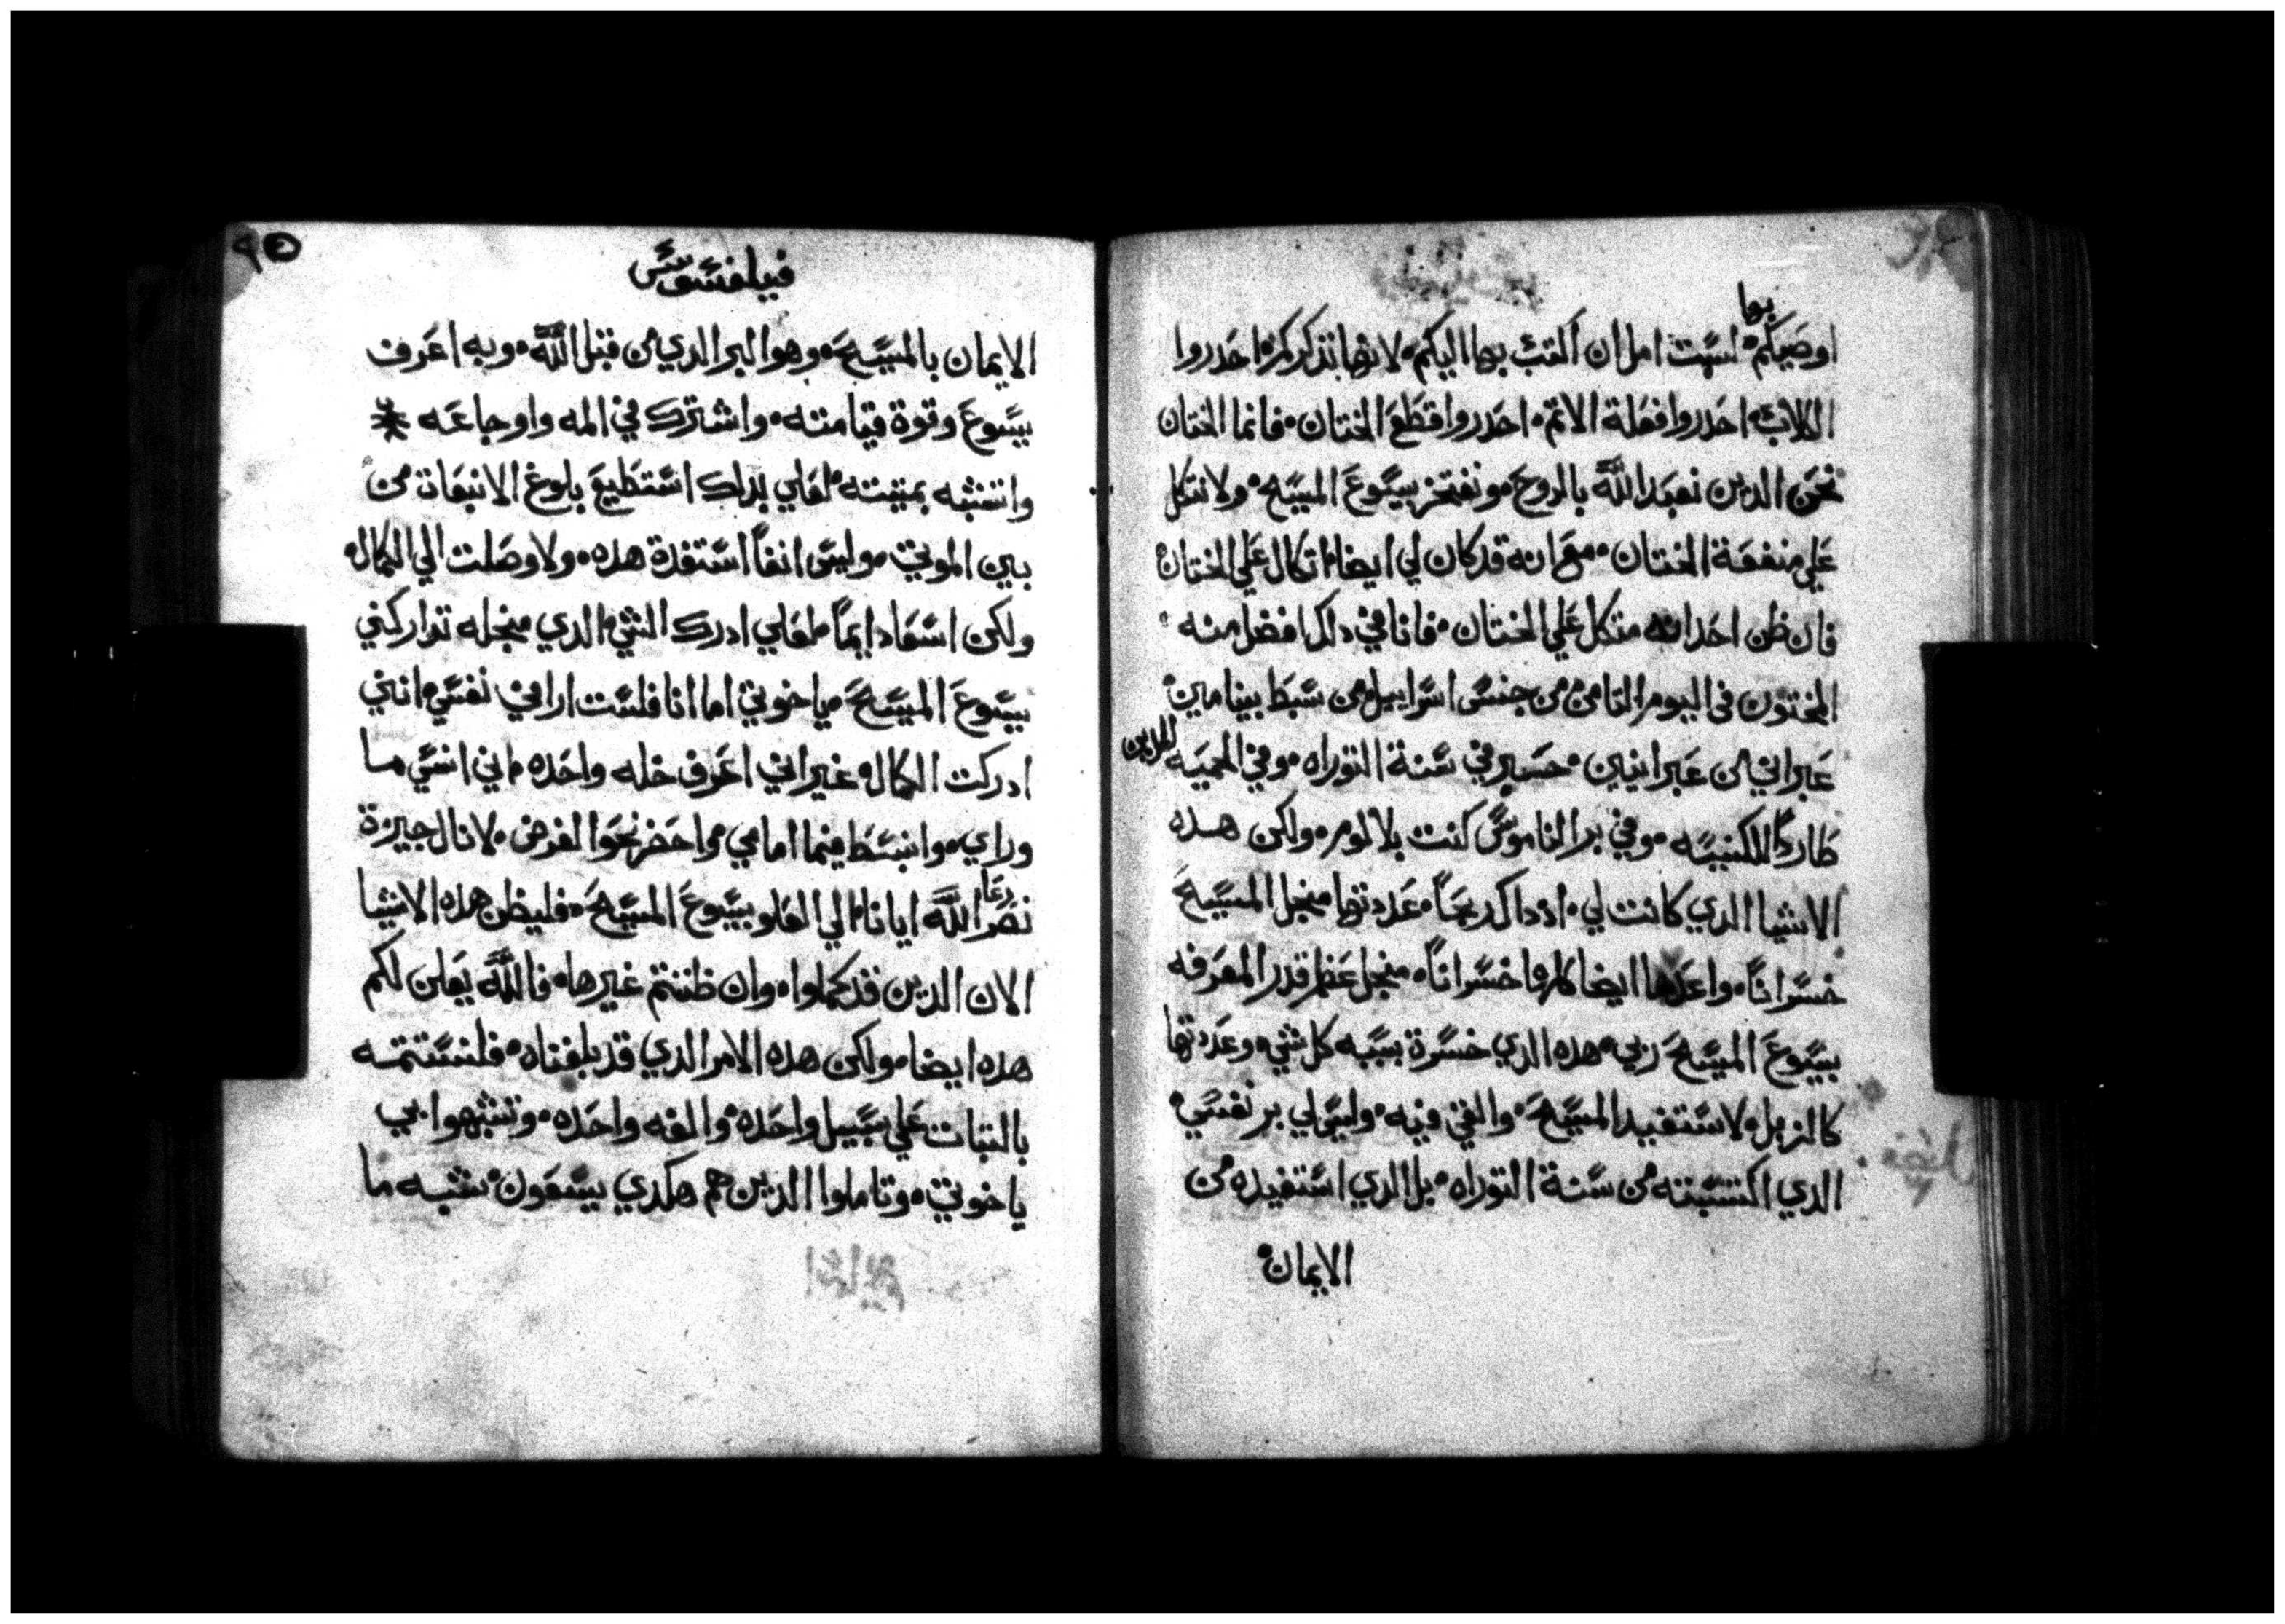 بها
اوصيكم۰ لست امل ان اكتب بها اليكم۰ لانها تذكركم۰ احدروا
الكلاب۰ احدروا فعلة الاتم۰ احدروا قطع الختان۰ فانما الختان
نحن الدين نعبد الله بالروح۰ ونفتخر بيسوع المسيح۰ ولا نتكل
علي منفعة الختان۰ مع انه قد كان لي ايضا اتكال علي الختان
فان ظن احد انه متكل علي الختان۰ فانا في دلك افضل منه
المختون في اليوم التامن من جنس اسراييل من سبط بينامين۰
عبراني من عبرانيين۰ حبير في سنة التوراه۰ وفي الحميه للدين
طاردًا للكنيسه۰ وفي بر الناموس كنت بلا لوم۰ ولكن هده
الاشيا الدي كانت لي۰ اد داك ربحًا۰ عددتها منجل المسيح
خسرانًا۰ واعدها ايضا كلها خسرانًا۰ منجل عظم قدر المعرفه
بيسوع المسيح ربي۰ هده الدي خسرة بسببه كل شي۰ وعددتها
كالزبل۰ لاستفيد المسيح۰ والفي فيه۰ وليس لي بر نفسي۰
الدي اكتسبته من سنة التوراه۰ بل الدي استفيده من
الايمان۰
٩٥
فيلفسوس
الايمان بالمسيح۰ وهو البر الدي من قبل الله۰ وبه اعرف
يسوع وقوة قيامته۰ واشترك في المه واوجاعه
واتشبه بميتته۰ لعلي بدلك استطيع بلوغ الانبعات من
بين الموتي۰ وليس انفاً استفدة هده۰ ولا وصلت الي الكمال۰
ولكن اسعا دايماً لعلي ادرك الشي الدي منجله تداركني
يسوع المسيح۰ ياخوتي اما انا فلست اراني نفسي انني
ادركت الكمال۰ غير اني اعرف خله واحده اني انسي ما
وراي۰ وانبسط فيما امامي واحضر نحو الغرض۰ لانال جيزة
دعا
نصر الله ايانا الي العلو بيسوع المسيح۰ فليظن هده الاشيا
الان الدين قد كملوا۰ وان ظننتم غيرها۰ فالله يعلن لكم
هده ايضا۰ ولكن هده الامر الدي قد بلغناه۰ فلنستتمه
بالتبات علي سبيل واحده۰ والفه واحده۰ وتشبهوا بي
ياخوتي۰ وتاملوا الدين هم هكدي يسعون۰ شبه ما